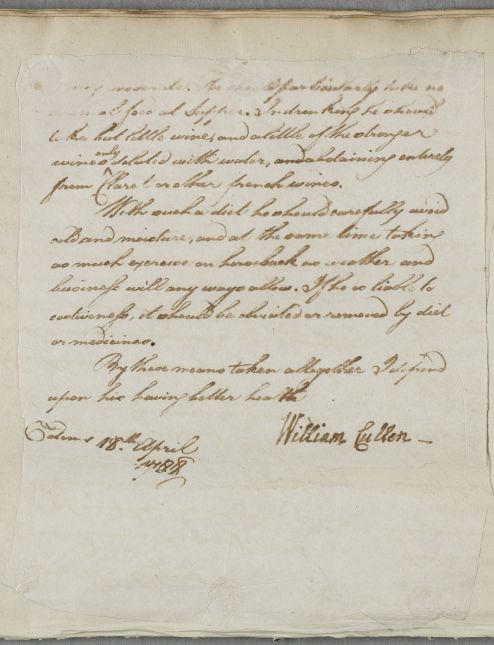 any more. He should particularly take no
animal food at Supper. In drinking he should
take but little wine, and a little of the stronger
wines only diluted with water, and abstaining entirely
from Claret or other french wines.
With such a diet he should carefully avoid
cold and moisture, and at the same time taking
as much exercise on horseback as weather and
business will any ways allow. If he is liable to
costiveness, it should be obviated or removed by diet
or medicines.
By these means taken alltogether I depend
upon his having better health
William Cullen
Edinr 18.th April
1788